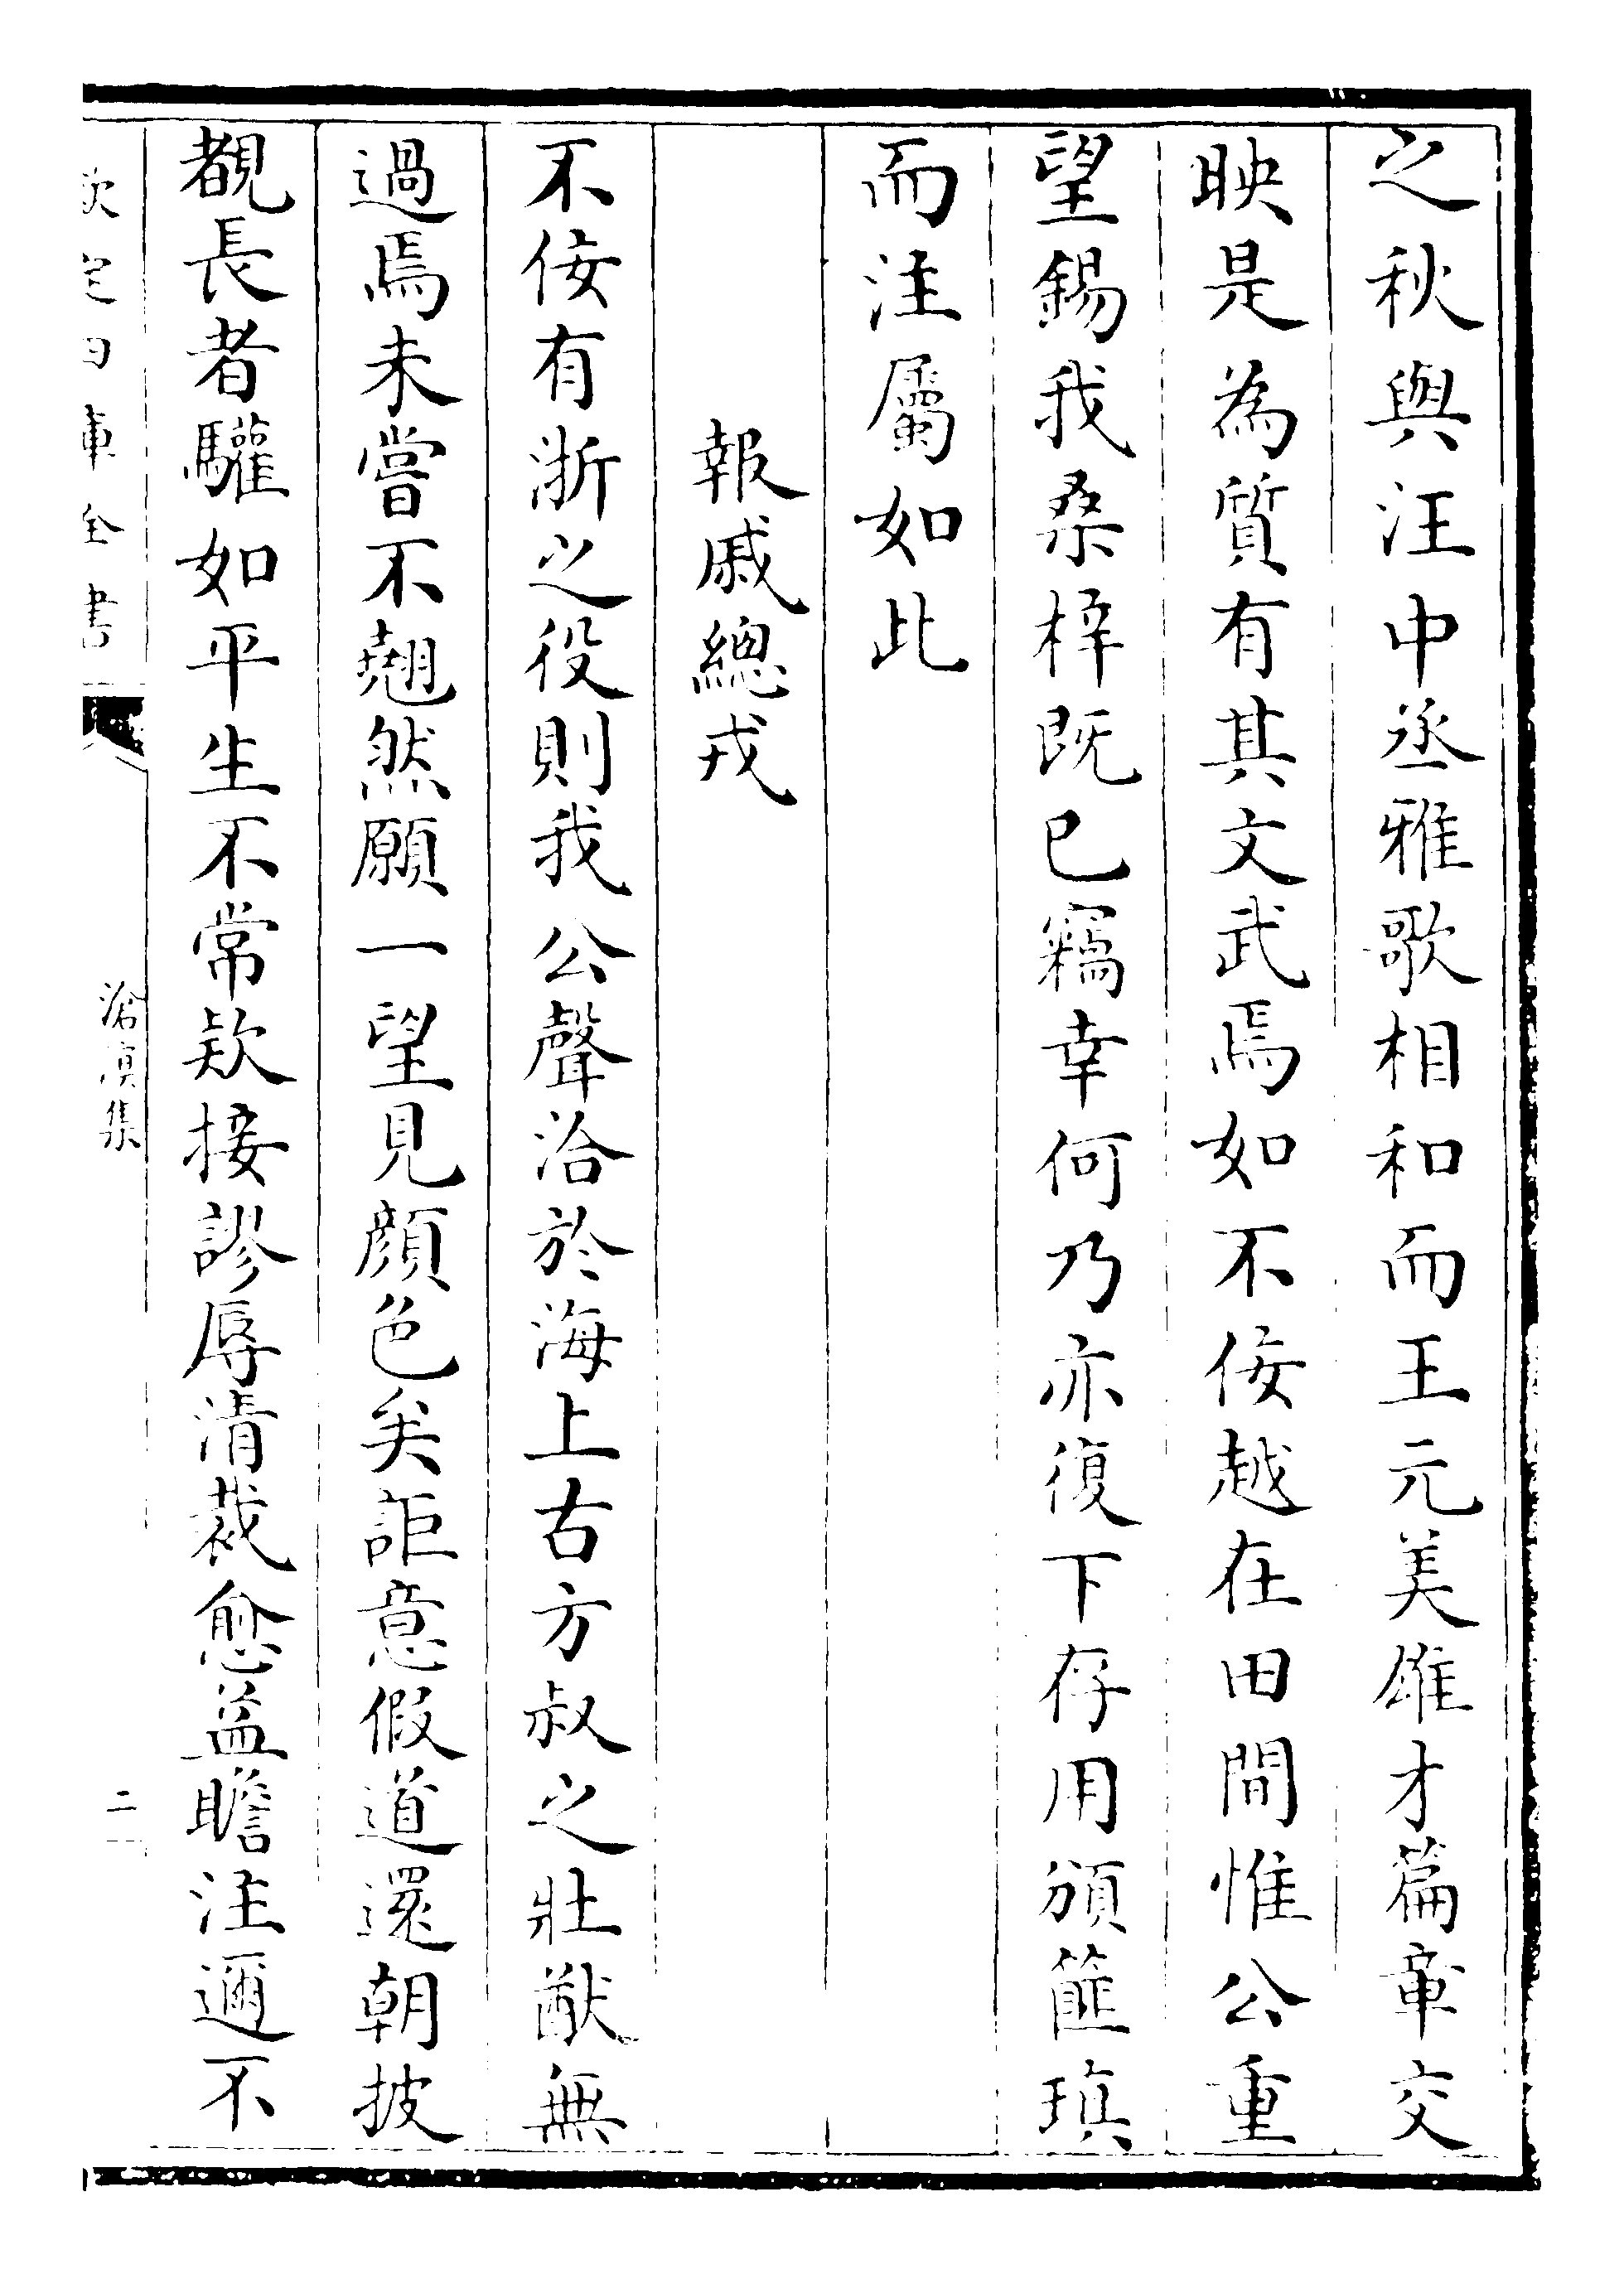 之秋與汪中丞雅歌相和而王元美雄才篇章交
映是為質有其文武焉如不佞越在田間惟公重
望錫我桑梓既已竊幸何乃亦復下存用頒篚瑱
而注屬如此
報戚總戎
不佞有浙之役則我公聲洽於海上古方叔之壯猷無
過焉未嘗不翹然願一望見顔色矣詎意假道還朝披
覩長者驩如平生不常欵接謬辱清裁愈益瞻注邇不
欽定四庫全書
滄溟集
二